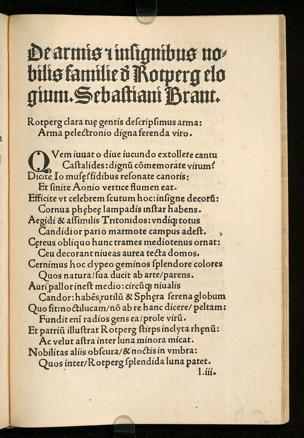 De armis & insignibus no-
bilis familie đ Rotperg elo
gium. Sebastiani Brant.
Rotperg clara tuę gentis descripsimus arma:
Arma pelectronio digna ferenda viro.
QVem iuuat o diuę iucundo extollere cantu
Castalides: dignũ cõmemorate virum?
Dicite Io musę: fidibus resonate canoris:
Et sinite Aonio vertice flumen eat.
Efficite vt celebrem scutum hoc: insigne decorũ:
Cornua phębeę lampadis instar habens.
Aegidi & assimilis Tritonidos: vndiq̃ totus
Candidior pario marmote campus adest.
Cęreus obliquo hunc trames mediotenus ornat:
Ceu decorant niueas aurea tecta domos.
Cernimus hoc clypeo geminos splendore colores
Quos natura / sua ducit ab arte / parens.
Auri pallor inest medio: circũq̃ niualis
Candor: habẽs rutilũ & Sphęra serena globum
Quo fit: noctilucam / nõ ab re hanc dicere / peltam:
Fundit eni radios gens ea / prole virũ.
Et patriũ illustrat Rotperg stirps inclyta rhęnũ:
Ac velut astra inter luna minora micat.
Nobilitas aliis obscura / & noctis in vmbra:
Quos inter / Rotperg splendida luna patet.
l.iii.